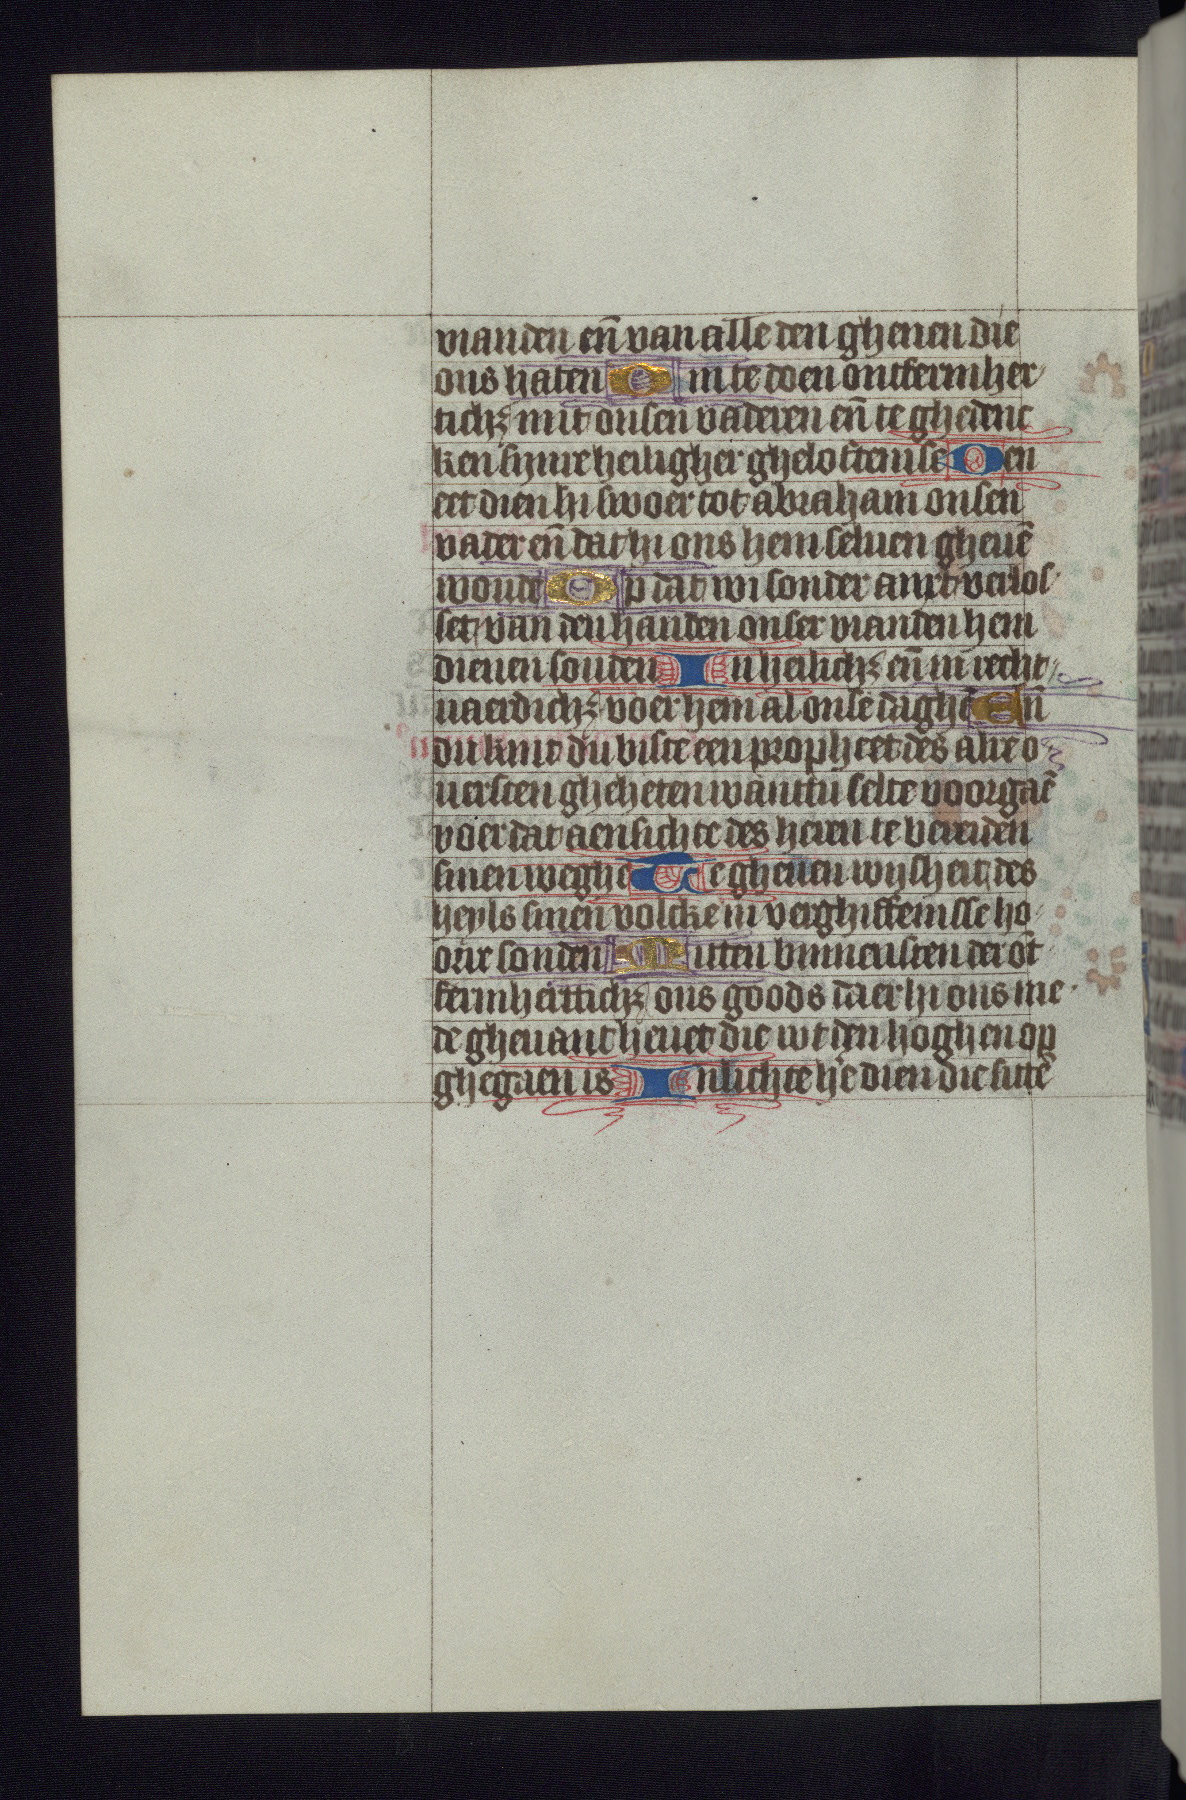 vianden en̄ van alle den ghenen die
ons haten Om te doen ontfermher
tichz mit onsen vaderen en̄ te ghedenc
ken sijnre heiligher gheloftenisse Den
eet dien hi swoer tot abraham onsen
vader en̄ dat hi ons hem seluen gheuē
woude Op dat wi sonder anxt verlos
set van den handen onser vianden hem
dienen souden In heilichz en̄ in recht
uaerdichz voer hem al onse daghe En̄
du kint du biste een propheet des alre o
uersten gheheten want tu selte voorgaē
voer dat aensichte des heren te bereiden
sinen weghe Te gheuen wijsheit des
heyls sinen volcke in verghiffenisse ho
orre sonden Mitten binnensten der ōt
fermhertichz ons goods daer hi ons me
de gheuant heuet die wt den hoghen op
ghegaen is Inlichte he dien die sittē